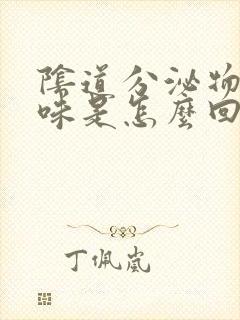 陰道分泌物
味是怎麼回
丁佩嵐